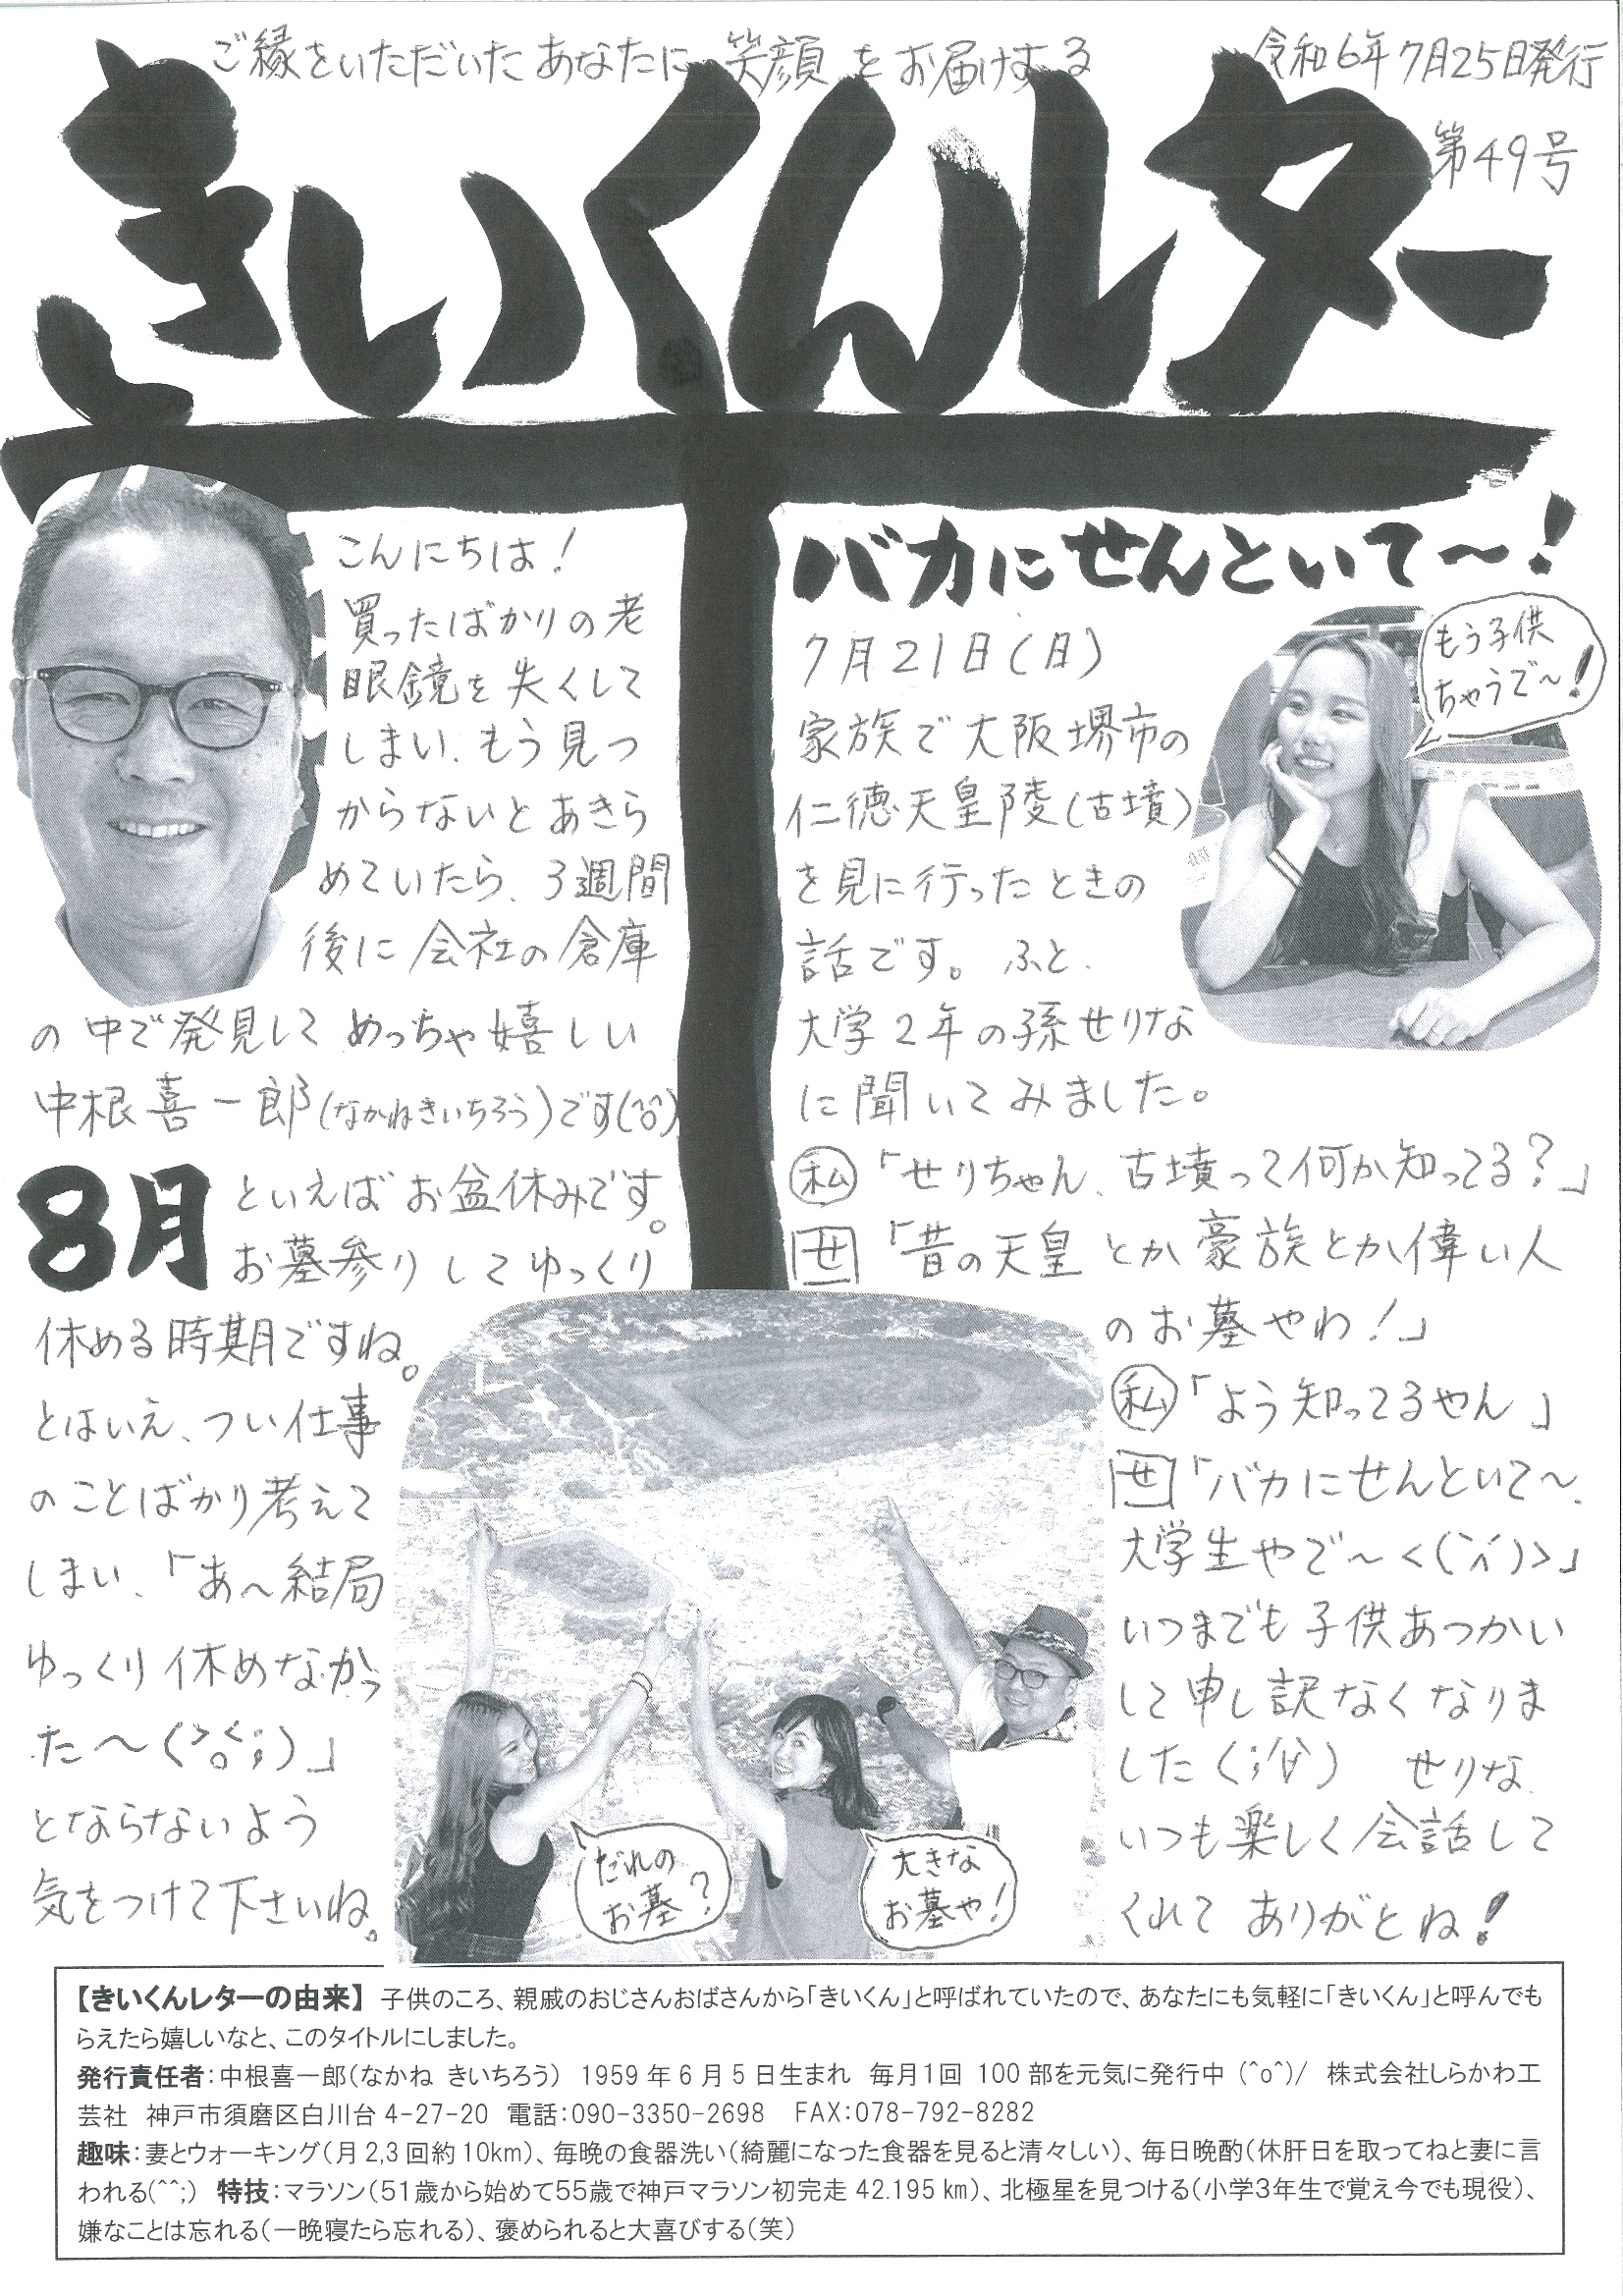 ご縁をいただいたあなたに笑顔をお届けする
令和6年7月25日発行
第49号
きいくんレター
こんにちは!
買ったばかりの老
眼鏡を失くして
しまい、もう見つ
からないとあきら
めていたら、3週間
後に会社の倉庫
の中で発見してめっちゃ嬉しい
中根喜一郎(なかねきいちろう)です(^o^)
8月といえばお盆休みです。
お墓参りしてゆっくり
休める時期ですね。
とはいえ、つい仕事
のことばかり考えて
しまい、「あ〜結局
ゆっくり休めなかっ
た〜(>o<;)」
とならないよう
気をつけて下さいね。
バカにせんといて〜!
7月21日(日)
家族で大阪堺市の
仁徳天皇陵(古墳)
を見に行ったときの
話です。ふと、
大学2年の孫せりな
に聞いてみました。
もう子供
ちゃうで〜!
私「せりちゃん、古墳って何か知ってる?」
せ「昔の天皇とか豪族とか偉い人
のお墓やわ!」
私「よう知ってるやん」
せ「バカにせんといて〜、
大学生やで〜<(`^´)>」
いつまでも子供あつかい
して申し訳なくなりま
した(;'∀')　せりな、
いつも楽しく会話して
くれてありがとね!
だれの
お墓?
大きな
お墓や!
【きいくんレターの由来】 子供のころ、親戚のおじさんおばさんから「きいくん」と呼ばれていたので、あなたにも気軽に「きいくん」と呼んでも
らえたら嬉しいなと、このタイトルにしました。
発行責任者:中根喜一郎(なかね きいちろう)　1959年6月5日生まれ　毎月1回　100部を元気に発行中 (^o^)/　株式会社しらかわ工
芸社　神戸市須磨区白川台4-27-20　電話:090-3350-2698　FAX:078-792-8282
趣味:妻とウォーキング(月2,3回約10km)、毎晩の食器洗い(綺麗になった食器を見ると清々しい)、毎日晩酌(休肝日を取ってねと妻に言
われる(^^;)　特技:マラソン(51歳から始めて55歳で神戸マラソン初完走42.195km)、北極星を見つける(小学3年生で覚え今でも現役)、
嫌なことは忘れる(一晩寝たら忘れる)、褒められると大喜びする(笑)